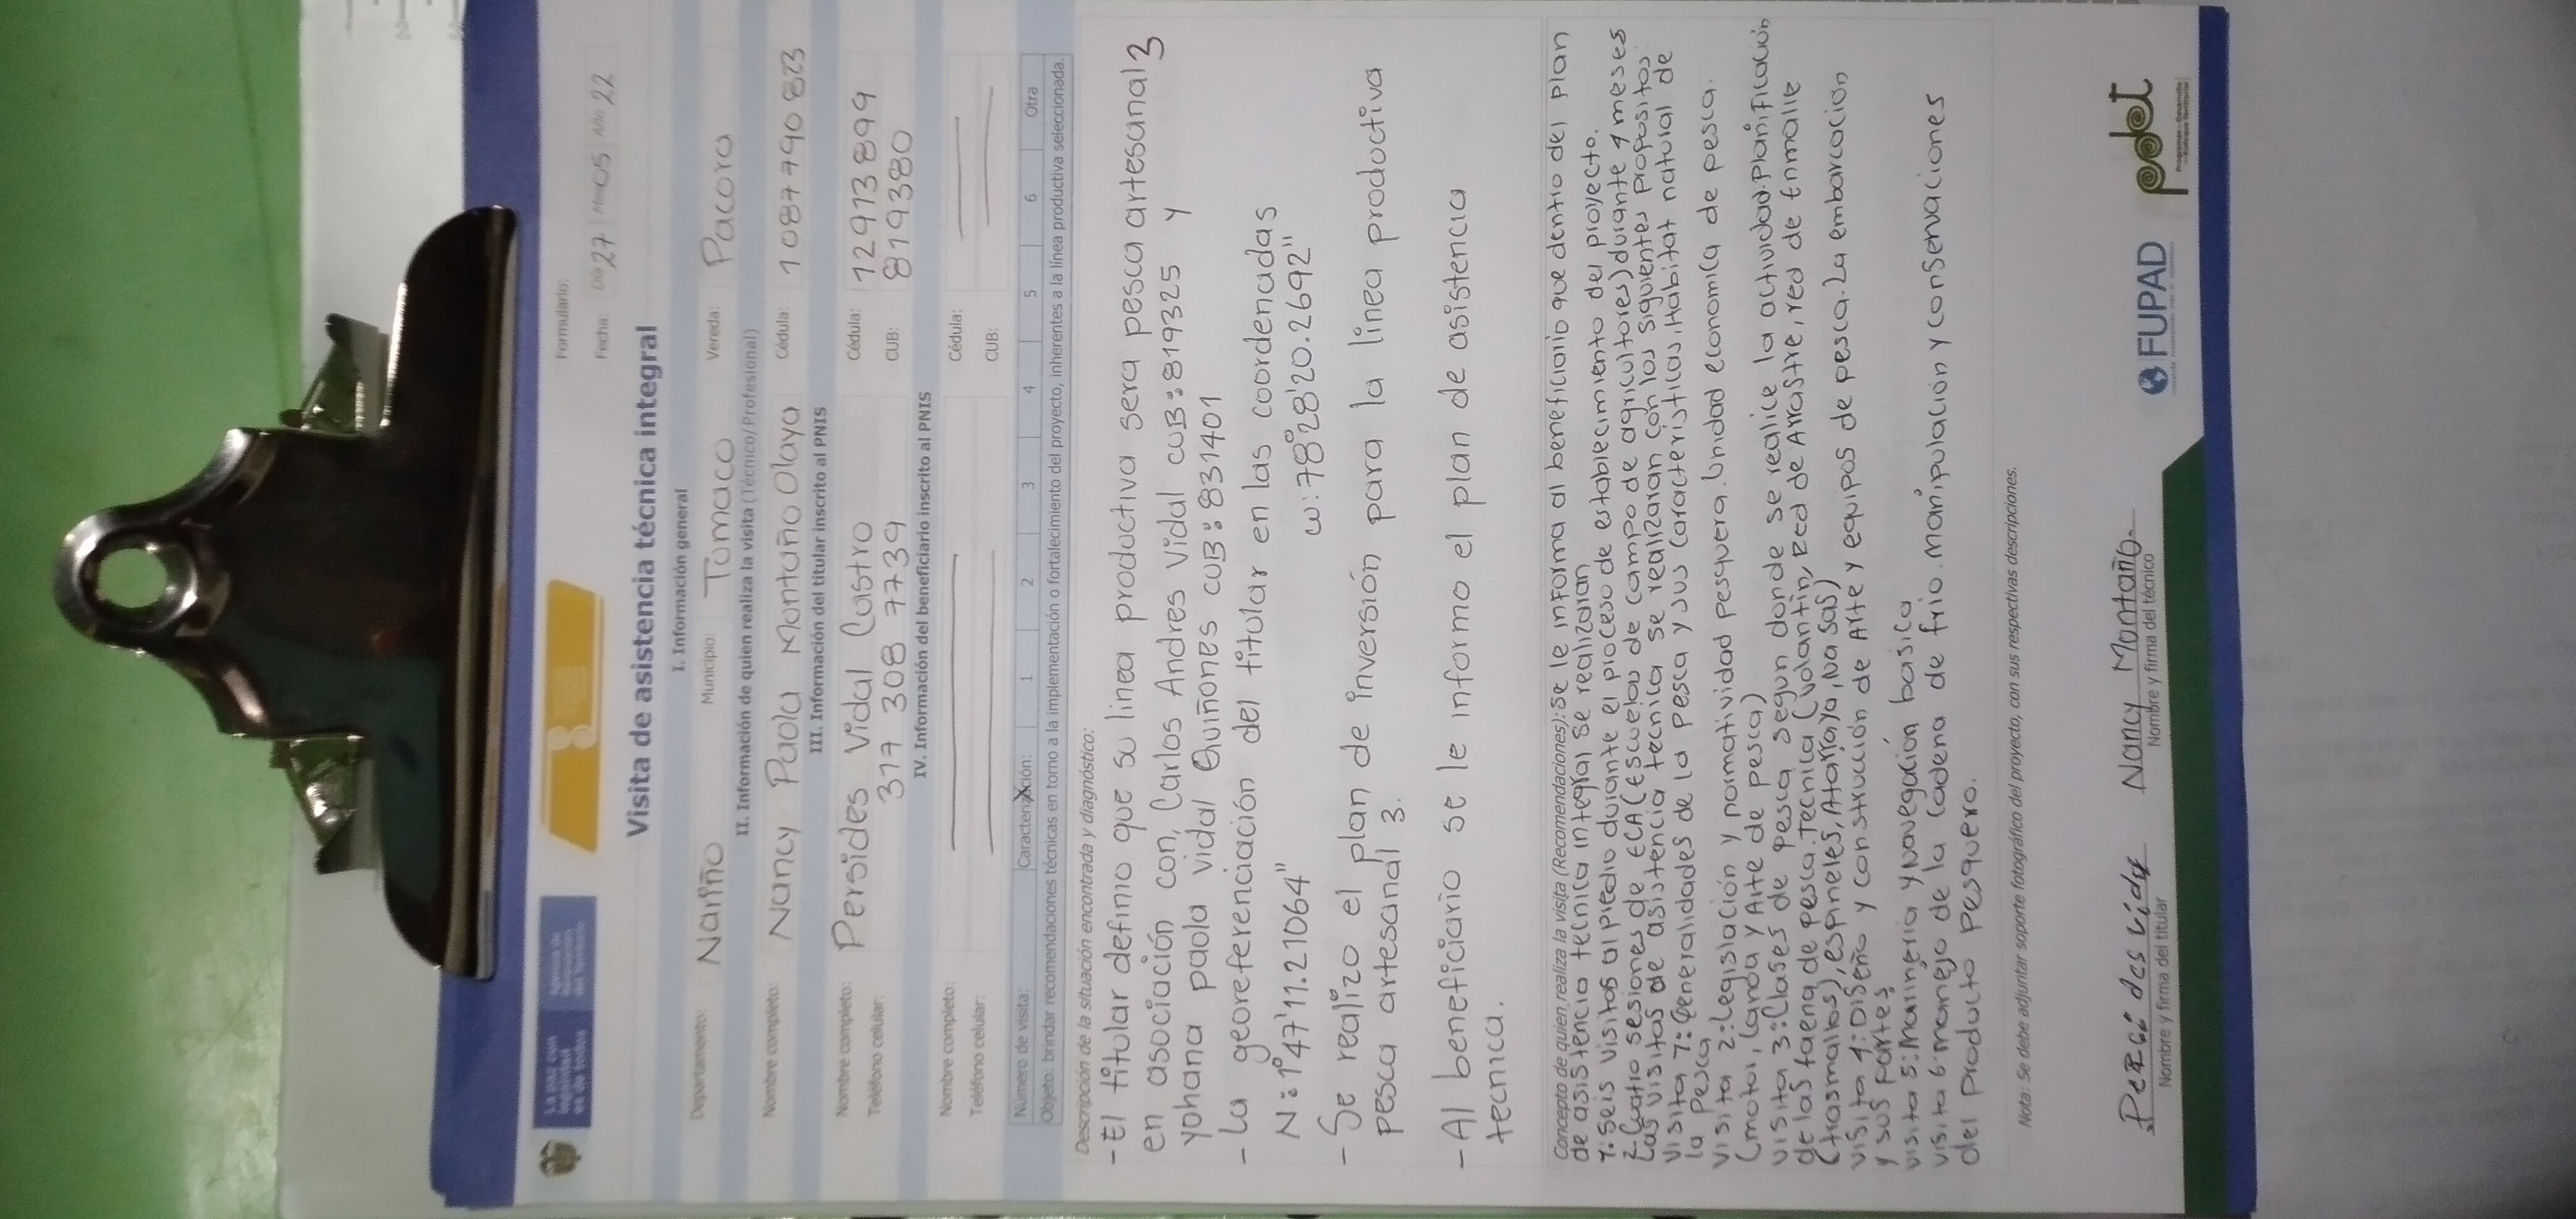 La paz con
legalidad
es de todos
Agencia de
Renovación
del Territorio
Formulario:
Fecha: Día 27 Mes 05 Año 22
Visita de asistencia técnica integral
I. Información general
Departamento: Nariño Municipio: Tumaco Vereda: Pacora
II. Información de quien realiza la visita (Técnico/Profesional)
Nombre completo: Nancy Paola Montaño Olaya Cédula: 1087790823
III. Información del titular inscrito al PNIS
Nombre completo: Persides Vidal Castro Cédula: 12913899
Teléfono celular: 317 308 7739 CUB: 819380
IV. Información del beneficiario inscrito al PNIS
Nombre completo: Cédula:
Teléfono celular: CUB:
Número de visita: Caracterización: 1 2 3 4 5 6 Otra
Objeto: brindar recomendaciones técnicas en torno a la implementación o fortalecimiento del proyecto, inherentes a la línea productiva seleccionada.
Descripción de la situación encontrada y diagnóstico:
- El titular definio que su linea productiva sera pesca artesanal 3
en asociación con, Carlos Andres Vidal CUB: 819325 y
Yohana paola vidal Quiñones CUB: 831401
- La georeferenciación del titular en las coordenadas
N: 1°47'11.21064" W: 78°28'20.2692"
- Se realizo el plan de inversión para la linea productiva
pesca artesanal 3.
- Al beneficiario se le informo el plan de asistencia
tecnica.
Concepto de quien realiza la visita (Recomendaciones): se le informa al beneficiario que dentro del plan
de asistencia tecnica integral se realizaran
1: seis visitas al predio durante el proceso de establecimiento del proyecto.
2- Cuatro sesiones de ECA (escuelas de campo de agricultores) durante 4 meses
Las visitas de asistencia tecnica se realizaran con los siguientes propositos:
visita 1: Generalidades de la pesca y sus caracteristicas, Habitat natural de
la pesca
visita 2: Legislación y normatividad pesquera. Unidad economica de pesca.
(motor, canoa y Arte de pesca)
visita 3: Clases de pesca segun donde se realice la actividad. Planificación
de las faena de pesca. Tecnica (volantin, Red de Arrastre, red de Enmalle
(trasmallos), espineles, Atarraya, Nasas)
visita 4: Diseño y construcción de Arte y equipos de pesca. La embarcacion
y sus partes
visita 5: Marineria y Navegación basica
visita 6: manejo de la cadena de frio. manipulación y conservaciones
del producto pesquero.
Nota: Se debe adjuntar soporte fotográfico del proyecto, con sus respectivas descripciones.
Nancy Montaño
Nombre y firma del titular Nombre y firma del técnico
FUPAD
pdet